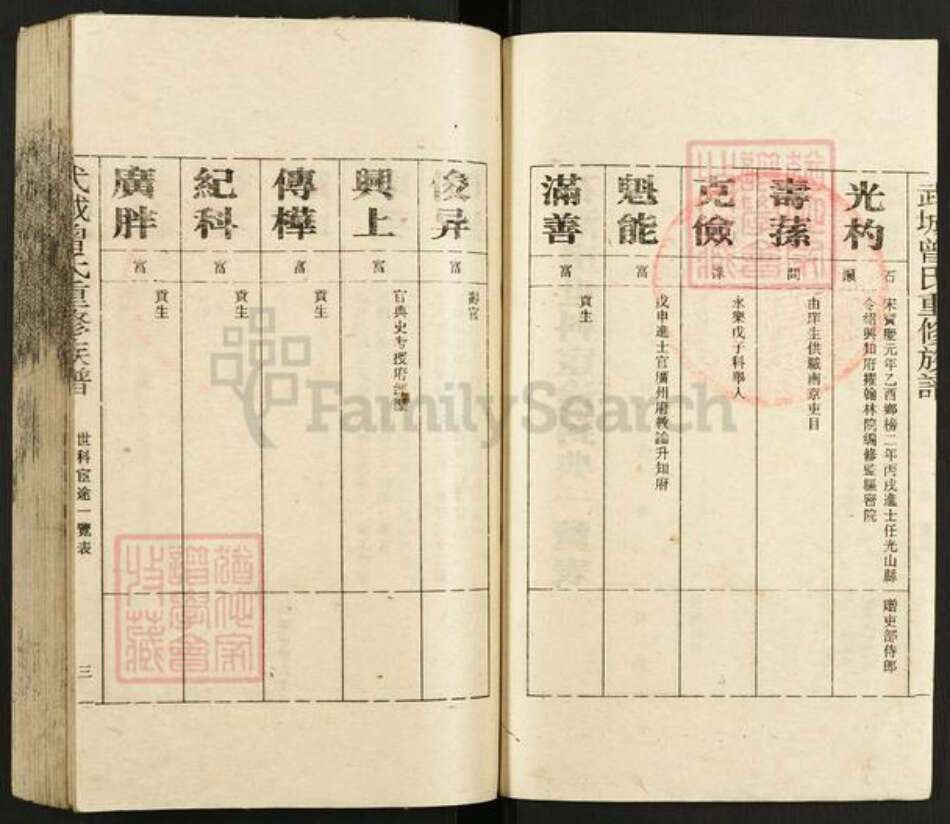 武城曾氏重修族譜
光杓
石瀨
宋寶慶元年乙酉鄉榜二年丙戌進士任光山縣
令紹興知府擢翰林院編修監樞密院
贈吏部侍郎
壽蓀
問
由庠生供職南京吏目
克儉
永樂戊子科舉人
魁能
富
戊申進士官廣州府教諭升知府
滿善
富
貢生
俊昇
富
壽官
興上
富
官典史考授府
傳樺
富
貢生
紀科
富
貢生
廣胖
富
貢生
武城曾氏重修族譜
世科宦途一覽表
三
FamilySearch